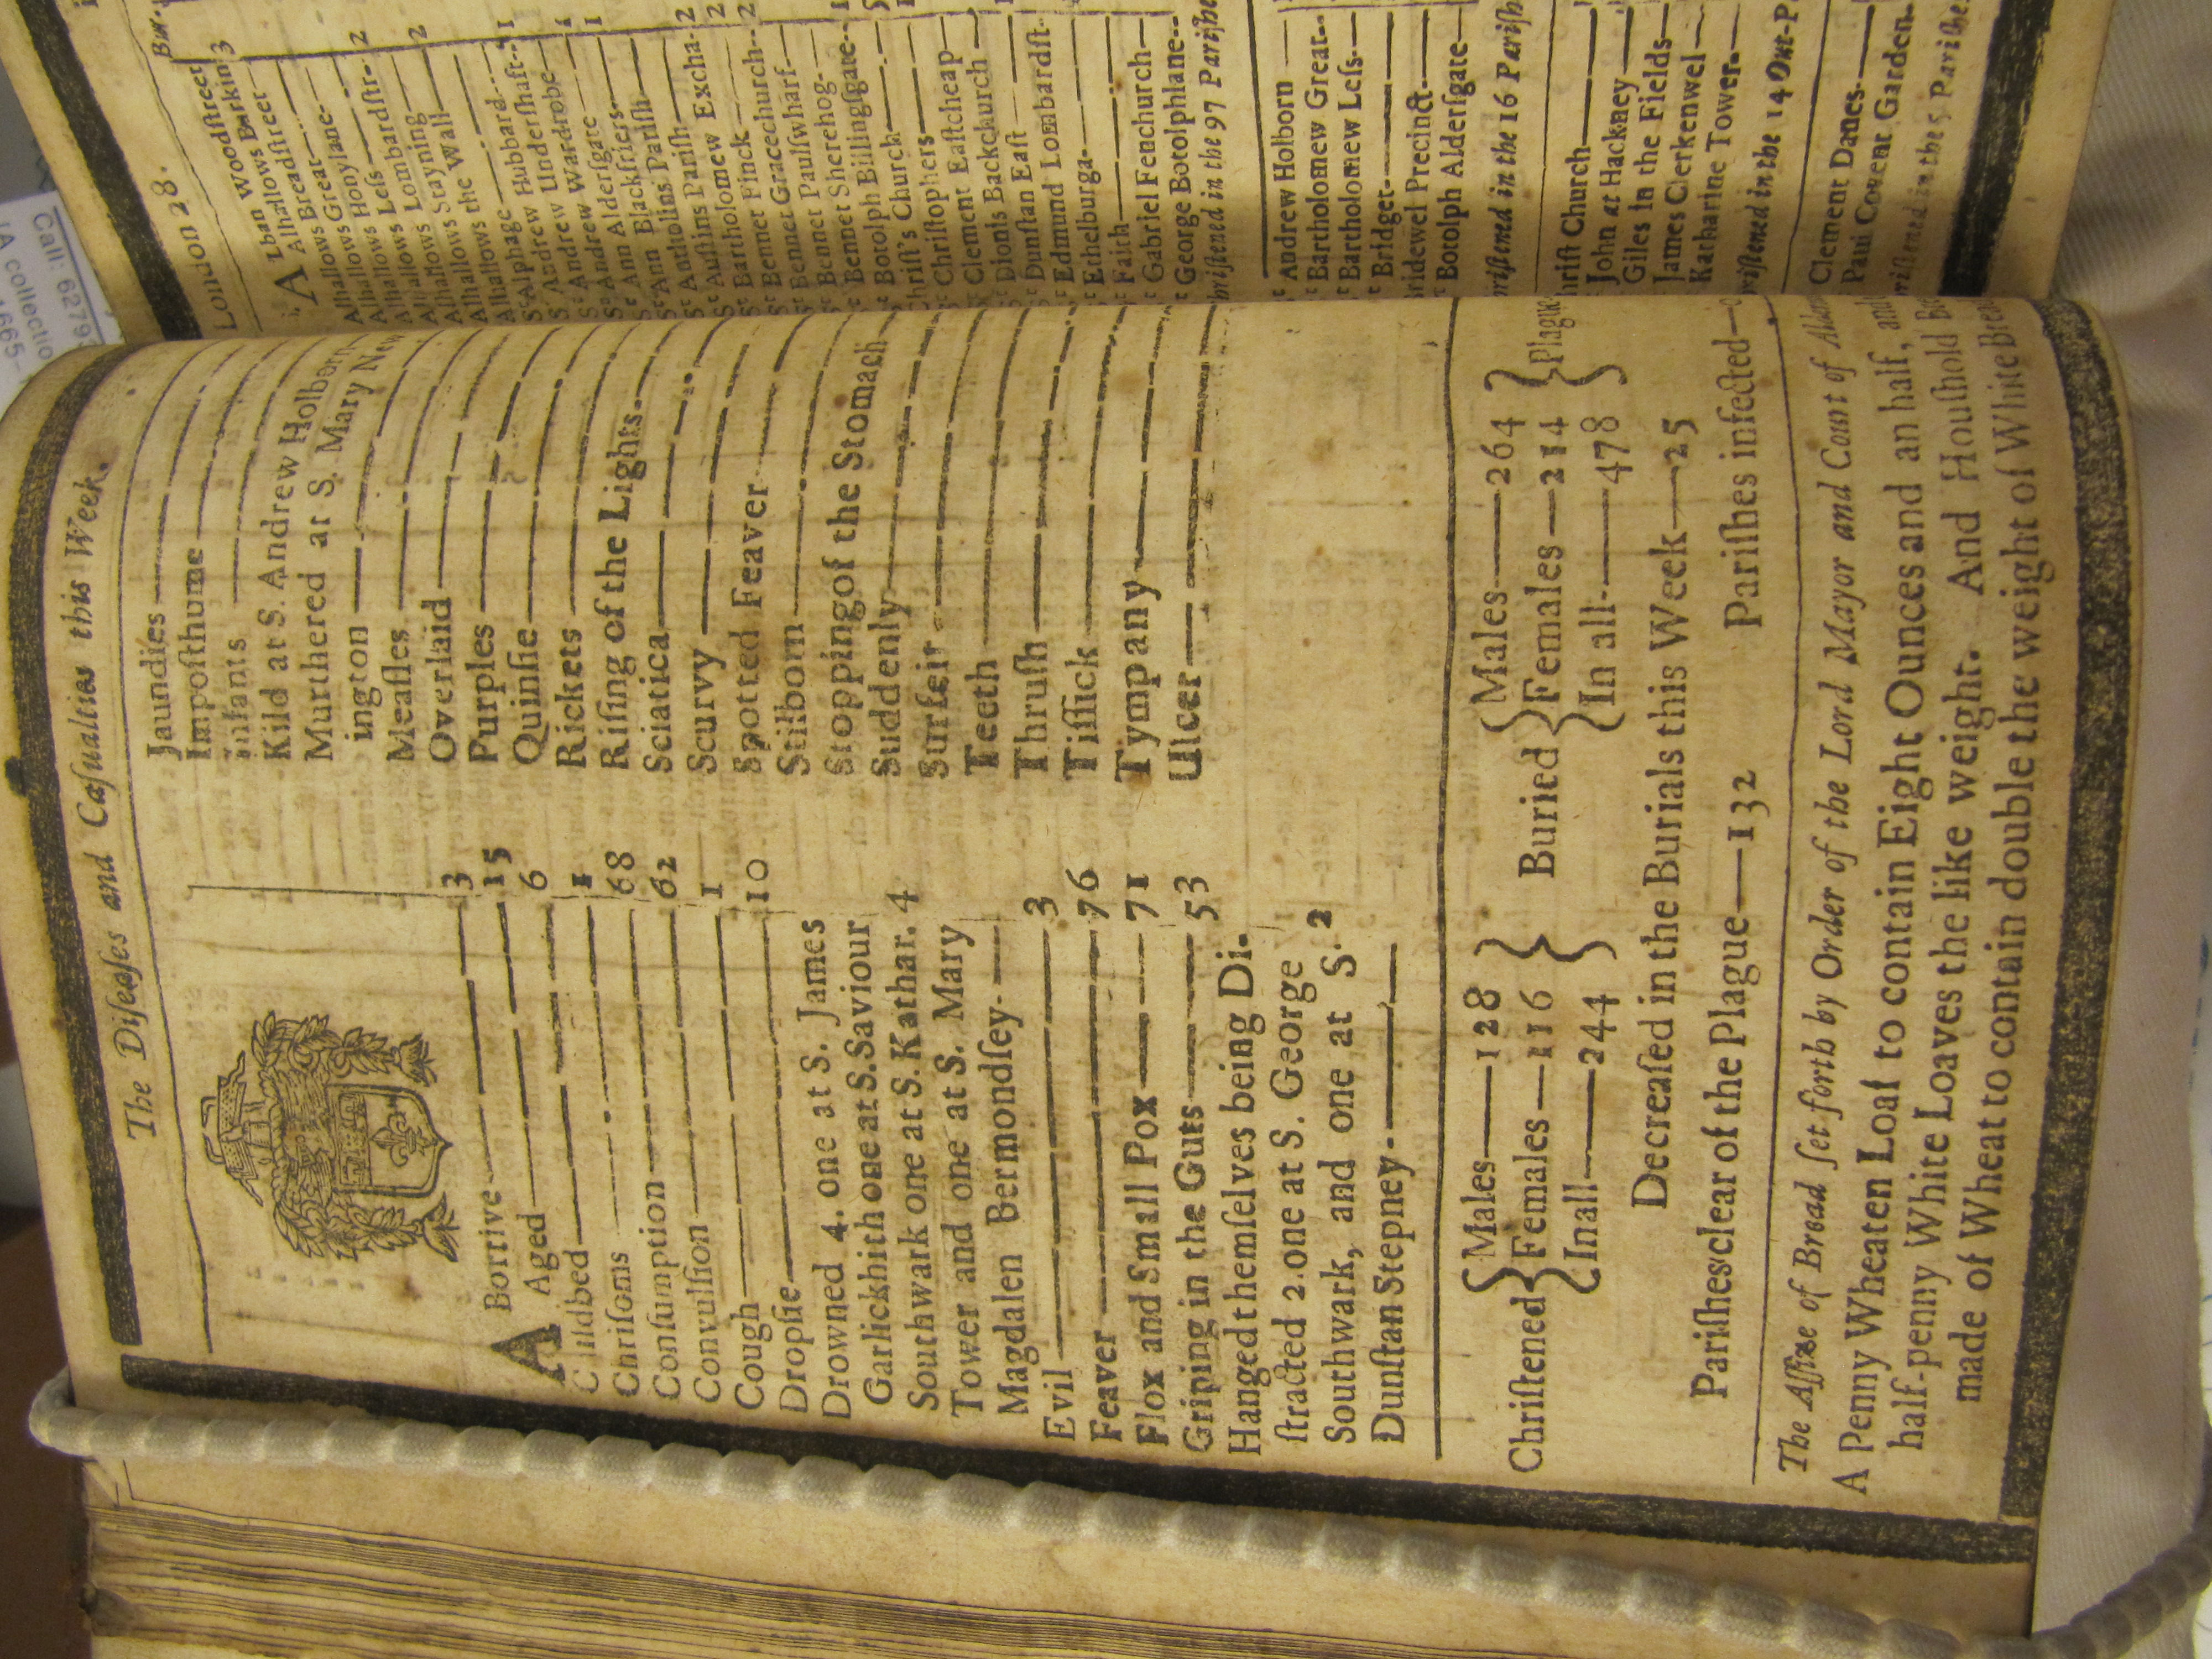 The Diſeaſes and Caſualties this Week.
ABortive 3
Aged 15
Childbed 6
Chriſoms 1
Conſumption 68
Convulſion 62
Cough 1
Dropſie 10
Drowned 4. one at S. James
Garlickhith one at S. Saviour
Southwark one at S. Kathar. 4
Tower and one at S. Mary
Magdalen Bermondſey
Evil 3
Feaver 76
Flox and Small Pox 71
Griping in the Guts 53
Hanged themſelves being Di-
ſtracted 2. one at S. George
Southwark, and one at S. 2
Dunſtan Stepney
Jaundies
Impoſthume
Infants
Kild at S. Andrew Holborn
Murthered at S. Mary New
ington
Meaſles
Overlaid
Purples
Quinſie
Rickets
Riſing of the Lights
Sciatica
Scurvy
Spotted Feaver
Stilborn
Stopping of the Stomach
Suddenly
Surfeit
Teeth
Thruſh
Tiſſick
Tympany
Ulcer
Chriſtened { Males 128
Females 116
In all 244 }
Buried { Males 264
Females 214
In all 478 } Plague
Decreaſed in the Burials this Week 25
Pariſhes clear of the Plague 132 Pariſhes infected
The Aſſize of Bread ſet forth by Order of the Lord Mayor and Court of
A Penny Wheaten Loaf to contain Eight Ounces and an half, and
half-penny White Loaves the like weight. And Houſhold
made of Wheat to contain double the weight of White
London 28. Bur.
ALban Woodſtreet 3
Alhallows Barkin
Alhallows Breadſtreet
Alhallows Great
Alhallows Honylane
Alhallows Leſs 2
Alhallows Lombardſtr.
Alhallows Stayning 2
Alhallows the Wall
St Alphage
St Andrew Hubbard
St Andrew Underſhaft 1
St Andrew Wardrobe
St Ann Alderſgate 1
St Ann Blackfriers 1
St Antholins Pariſh
St Auſtins Pariſh
St Bartholomew Excha. 2
St Bennet Finck 2
St Bennet Gracechurch 2
St Bennet Paulſwharf
St Bennet Sherehog
St Botolph Billingſgate 1
Chriſt's Church
St Chriſtophers
St Clement Eaſtcheap
St Dionis Backchurch
St Dunſtan Eaſt
St Edmund Lombardſt.
St Ethelburga
St Faith
St Gabriel Fenchurch
St George Botolphlane
hriſtened in the 97 Pariſhe
St Andrew Holborn
St Bartholomew Great
St Bartholomew Leſs
St Bridget
ridewel Precinct
St Botolph Alderſgate
hriſtened in the 16 Pariſh
hriſt Church
John at Hackney
Giles in the Fields
James Clerkenwel
Katharine Tower
hriſtened in the 14 Out-P
Clement Danes
Paul Covent Garden
riſtened in the 5. Pariſhe
Call: 6279